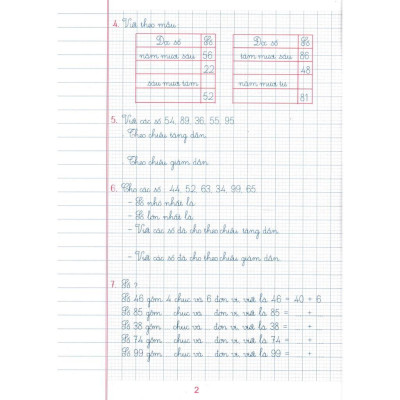 4. Viết theo mẫu:
Đọc số Số Đọc số Số
năm mươi sáu 56 tám mươi sáu 86
22 48
sáu mươi tám năm mươi tư
52 81
5. Viết các số 54, 89, 36, 55, 95
- Theo chiều tăng dần
- Theo chiều giảm dần
6. Cho các số 44, 52, 63, 34, 99, 65
- Số nhỏ nhất là
- Số lớn nhất là
- Viết các số đã cho theo chiều tăng dần
- Viết các số đã cho theo chiều giảm dần
7. Số ?
Số 46 gồm 4 chục và 6 đơn vị, viết là 46 = 40 + 6
Số 85 gồm ... chục và ... đơn vị, viết là 85 = ... + ...
Số 38 gồm ... chục và ... đơn vị, viết là 38 = ... + ...
Số 74 gồm ... chục và ... đơn vị, viết là 74 = ... + ...
Số 99 gồm ... chục và ... đơn vị, viết là 99 = ... + ...
2